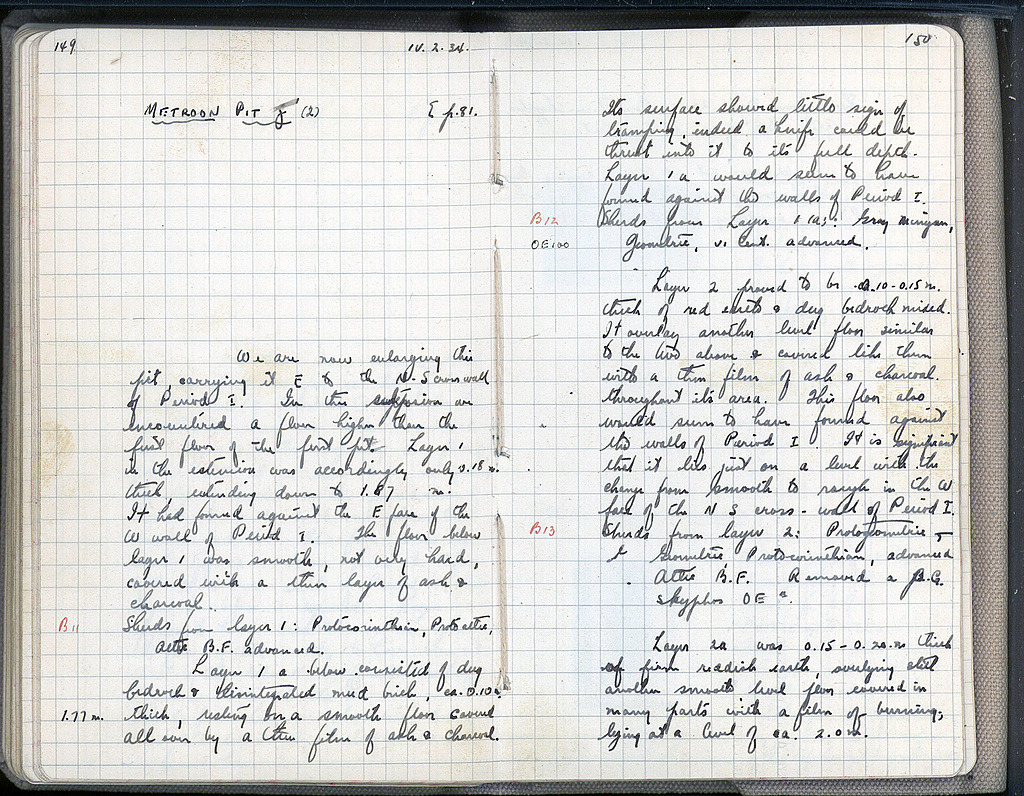 149
10.2.34.
METROON PIT J (2) ξ p.81.
We are now enlarging this
pit, carrying it E to the N-S cross wall
of Period I. In this we
encountered a floor higher than the
first floor of the first pit. Layer 1
in the extension was accordingly only 0.18 m.
thick, extending down to 1.87 m.
It had formed against the E face of the
W wall of Period I. The floor below
layer 1 was smooth, not very hard,
covered with a thin layer of ash &
charcoal.
B11 Sherds from layer 1: Protocorinthian, Protoattic,
Attic B.F. advanced.
Layer 1a below consisted of dug
bedrock & disintegrated mud brick, ca. 0.10 m
1.77 m. thick, resting on a smooth floor covered
all over by a thin film of ash & charcoal.
150
Its surface showed little sign of
tramping, indeed a knife could be
thrust into it to its full depth.
Layer 1a would seem to have
formed against the walls of Period I.
B12 Sherds from Layer 1(a): Gray minyan,
OE100 Geometric, vi cent. advanced.
Layer 2 proved to be 0.10-0.15 m.
thick of red earth & dug bedrock mixed.
It overlay another level floor similar
to the two above & covered like them
with a thin film of ash & charcoal
throughout its area. This floor also
would seem to have formed against
the walls of Period I. It is significant
that it lies just on a level with the
change from smooth to rough in the W
face of the N S cross-wall of Period I.
B13 Sherds from layer 2: Protogeometric
& Geometric, Protocorinthian, advanced
Attic B.F. Removed a B.G.
skyphos OE
Layer 2a was 0.15-0.20 m thick
of firm reddish earth, overlying still
another smooth, level floor covered in
many parts with a film of burning,
lying at a level of ca 2.0 m.